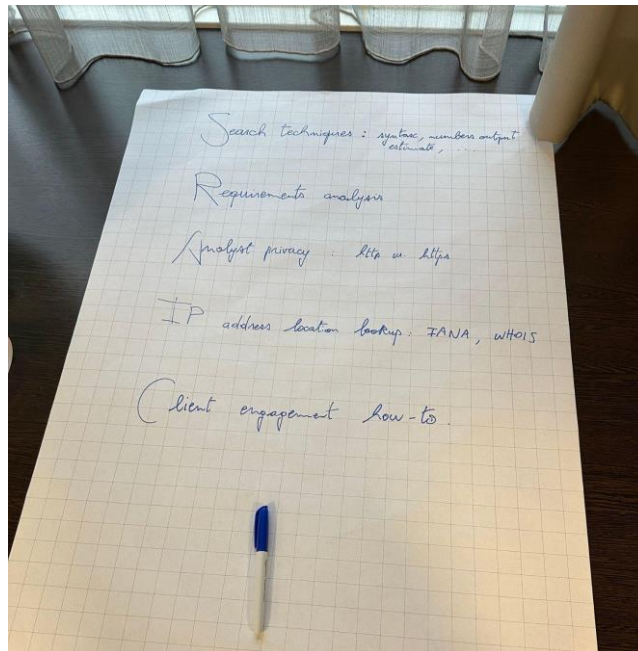 Search techniques : syntax, numbers output
estimate, ...
Requirements analysis
Analyst privacy : http vs. https
IP address location lookup : IANA, WHOIS
Client engagement how-to.